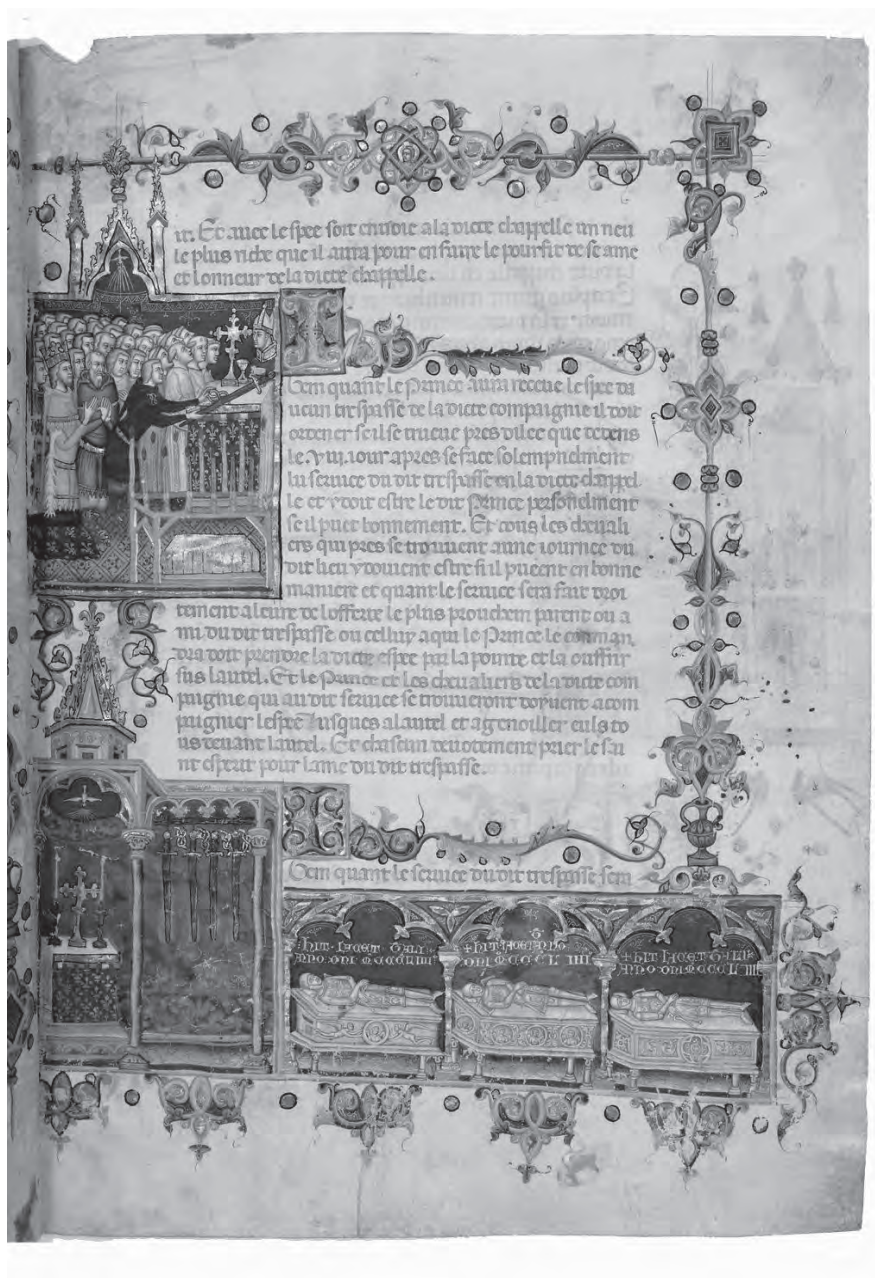 ir. Et auec lespee soit enuoie a la dicte chappelle un neu
le plus riche que il aura pour en faire le pourfit de se ame
et lonneur de la dicte chappelle.
I
tem quant le Prince aura receue lespee da
ucun trespasse de la dicte compaignie il doit
ordener se il se trueue pres dilec que dedens
le .VIII. iour apres se face solempnelment
lu seruice du dit trespasse en la dicte chappel
le et y doit estre le dit Prince personelment
se il puet bonnement. Et tous les cheuali
ers qui pres se trouuent a une iournee du
dit lieu y doiuent estre si il pueent en bonne
maniere et quant le seruice sera fait droi
tement aleure de lofferte le plus prouchein parent ou a
mi du dit trespasse ou celluy a qui le Prince le comman
dra doit prendre la dicte espee par la pointe et la ouffrir
sus lautel. Et le Prince et les cheualiers de la dicte com
paignie qui au dit seruice se trouueront doiuent acom
paignier lespee iusques a lautel et agenoiller euls to
us deuant lautel. Et chascun deuotement prier le sai
nt esperit pour lame du dit trespasse.
I
tem quant le seruice du dit trespasse sera
+ HIT · IACET · GALI
ANNO · DNI MCCCLIIII
+ HIT IACET ANNO
DNI MCCCLIIII
+ HIT IACET GALI
ANNO · DNI MCCCLIIII